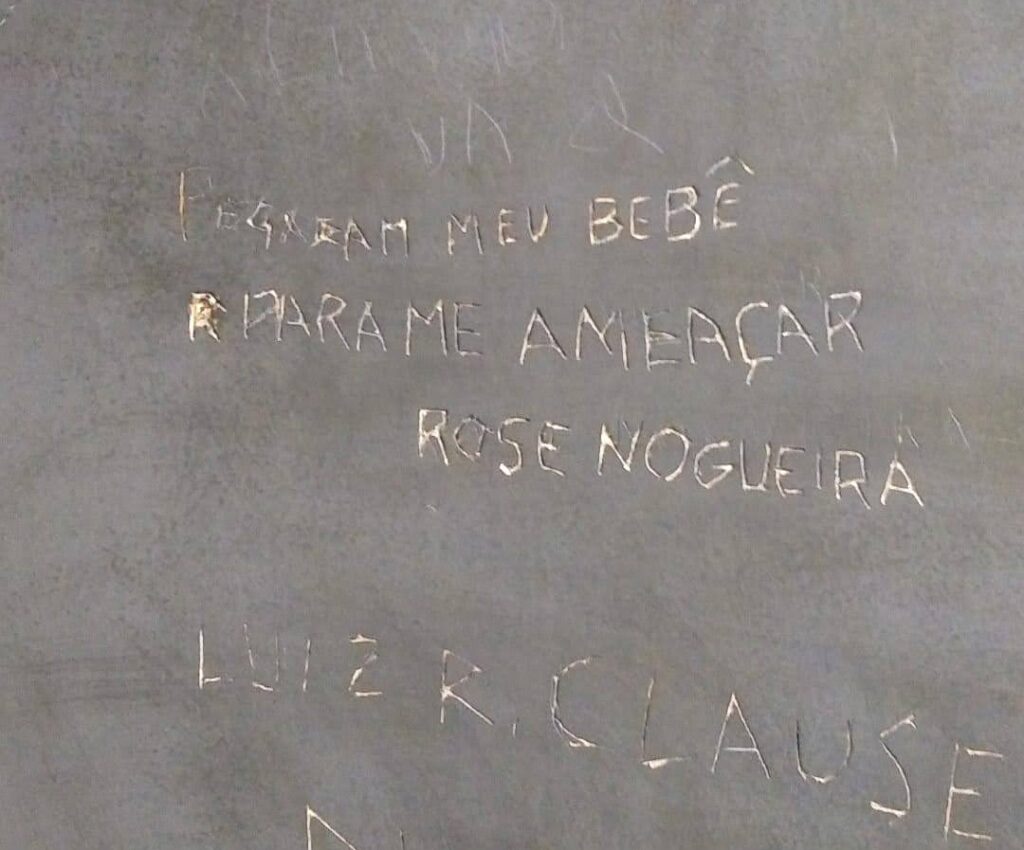 PEGARAM MEU BEBÊ
PARA ME AMEAÇAR
ROSE NOGUEIRA
LUIZ R. CLAUSE